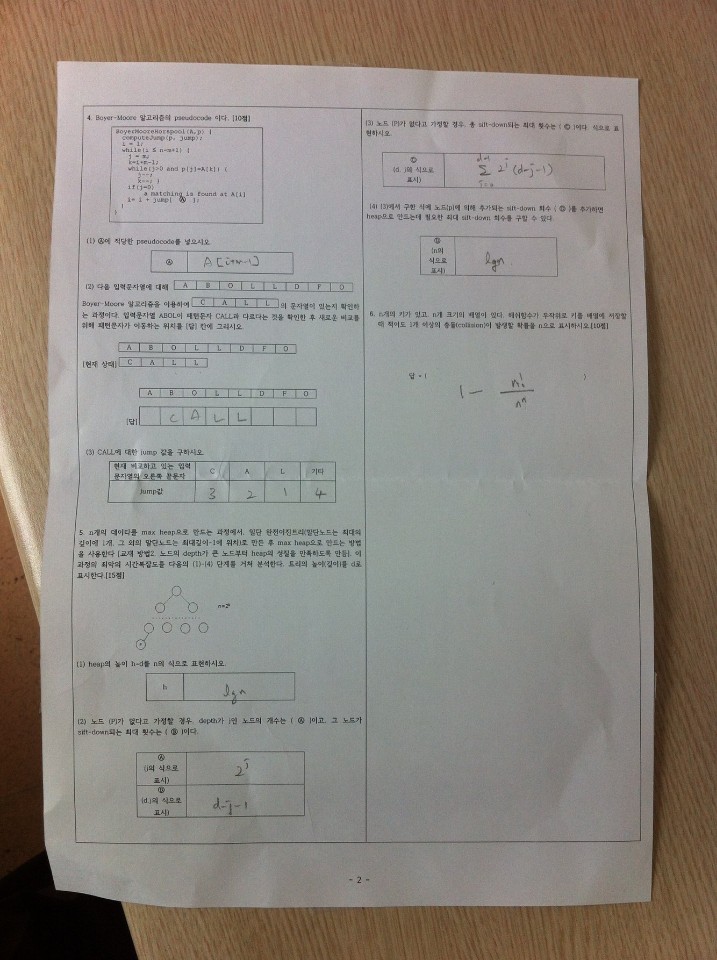 4. Boyer-Moore 알고리즘의 pseudocode 이다. [10점]
BoyerMooreHorspool(A,p) {
computeJump(p, jump);
i = 1;
while(i ≤ n-m+1) {
j = m;
k=i+m-1;
while(j>0 and p[j]=A[k]) {
j--;
k--; }
if(j=0)
a matching is found at A[i]
i= i + jump[ Ⓐ ];
}
}
(1) Ⓐ에 적당한 pseudocode를 넣으시오.
Ⓐ A[i+m-1]
(2) 다음 입력문자열에 대해 A B O L L D F O
Boyer-Moore 알고리즘을 이용하여 C A L L 의 문자열이 있는지 확인하
는 과정이다. 입력문자열 ABOL이 패턴문자 CALL과 다르다는 것을 확인한 후 새로운 비교를
위해 패턴문자가 이동하는 위치를 [답] 칸에 그리시오.
A B O L L D F O
[현재 상태] C A L L
A B O L L D F O
[답] C A L L
(3) CALL에 대한 jump 값을 구하시오.
현재 비교하고 있는 입력 C A L 기타
문자열의 오른쪽 끝문자
jump값 3 2 1 4
5. n개의 데이타를 max heap으로 만드는 과정에서, 일단 완전이진트리(말단노드는 최대의
깊이에 1개, 그 외의 말단노드는 최대깊이-1에 위치)로 만든 후 max heap으로 만드는 방법
을 사용한다 (교재 방법2. 노드의 depth가 큰 노드부터 heap의 성질을 만족하도록 만듬). 이
과정의 최악의 시간복잡도를 다음의 (1)-(4) 단계를 거쳐 분석한다. 트리의 높이(깊이)를 d로
표시한다.[15점]
n=2ᵈ
P
(1) heap의 높이 h=d를 n의 식으로 표현하시오.
h lgn
(2) 노드 (P)가 없다고 가정할 경우, depth가 j인 노드의 개수는 ( Ⓐ )이고, 그 노드가
sift-down되는 최대 횟수는 ( Ⓑ )이다.
Ⓐ
(j의 식으로
표시) 2ʲ
Ⓑ
(d,j의 식으로
표시) d-j-1
(3) 노드 (P)가 없다고 가정할 경우, 총 sift-down되는 최대 횟수는 ( Ⓒ )이다. 식으로 표
현하시오.
Ⓒ
(d, j의 식으로
표시) d-1 Σ j=0 2ʲ (d-j-1)
(4) (3)에서 구한 식에 노드(p)에 의해 추가되는 sift-down 회수 ( Ⓓ )를 추가하면
heap으로 만드는데 필요한 최대 sift-down 회수를 구할 수 있다.
Ⓓ
(n의
식으로
표시) lgn
6. n개의 키가 있고, n개 크기의 배열이 있다. 해쉬함수가 무작위로 키를 배열에 저장할
때 적어도 1개 이상의 충돌(collision)이 발생할 확률을 n으로 표시하시오.[10점]
답 = ( 1 - n!/nⁿ )
- 2 -